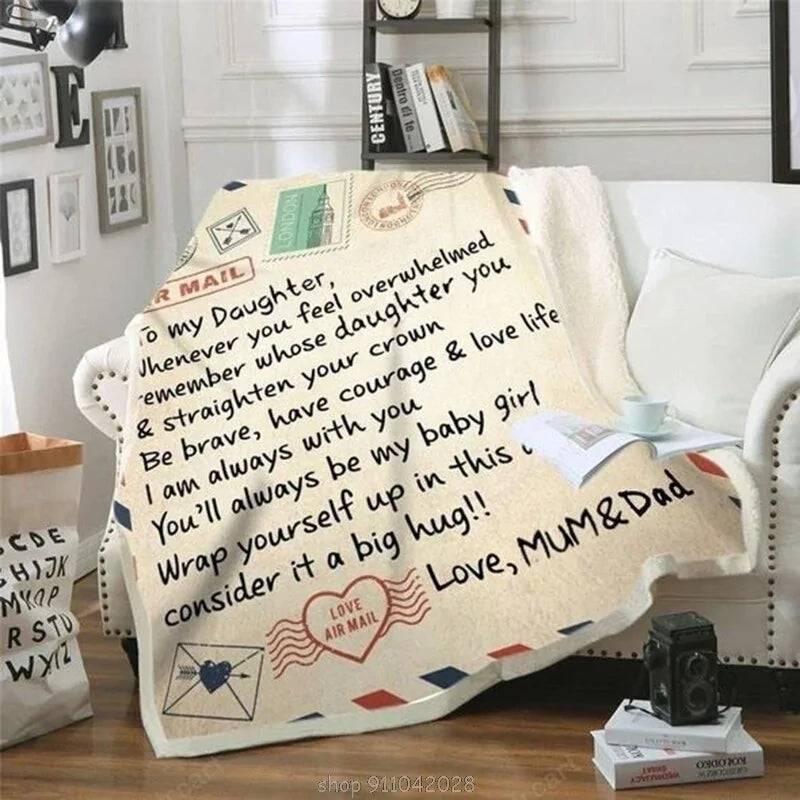 LONDON
R MAIL
To my Daughter,
Whenever you feel overwhelmed
remember whose daughter you
& straighten your crown
Be brave, have courage & love life
I am always with you
You'll always be my baby girl
Wrap yourself up in this
consider it a big hug!!
Love, MUM&Dad
LOVE
AIR MAIL
E
CENTURY
Dentro di te
CDE
GHIJK
MNOP
RSTU
WXYZ
KOŁODKO
WĘDRUJĄCY
ŚWIAT
shop 911042028